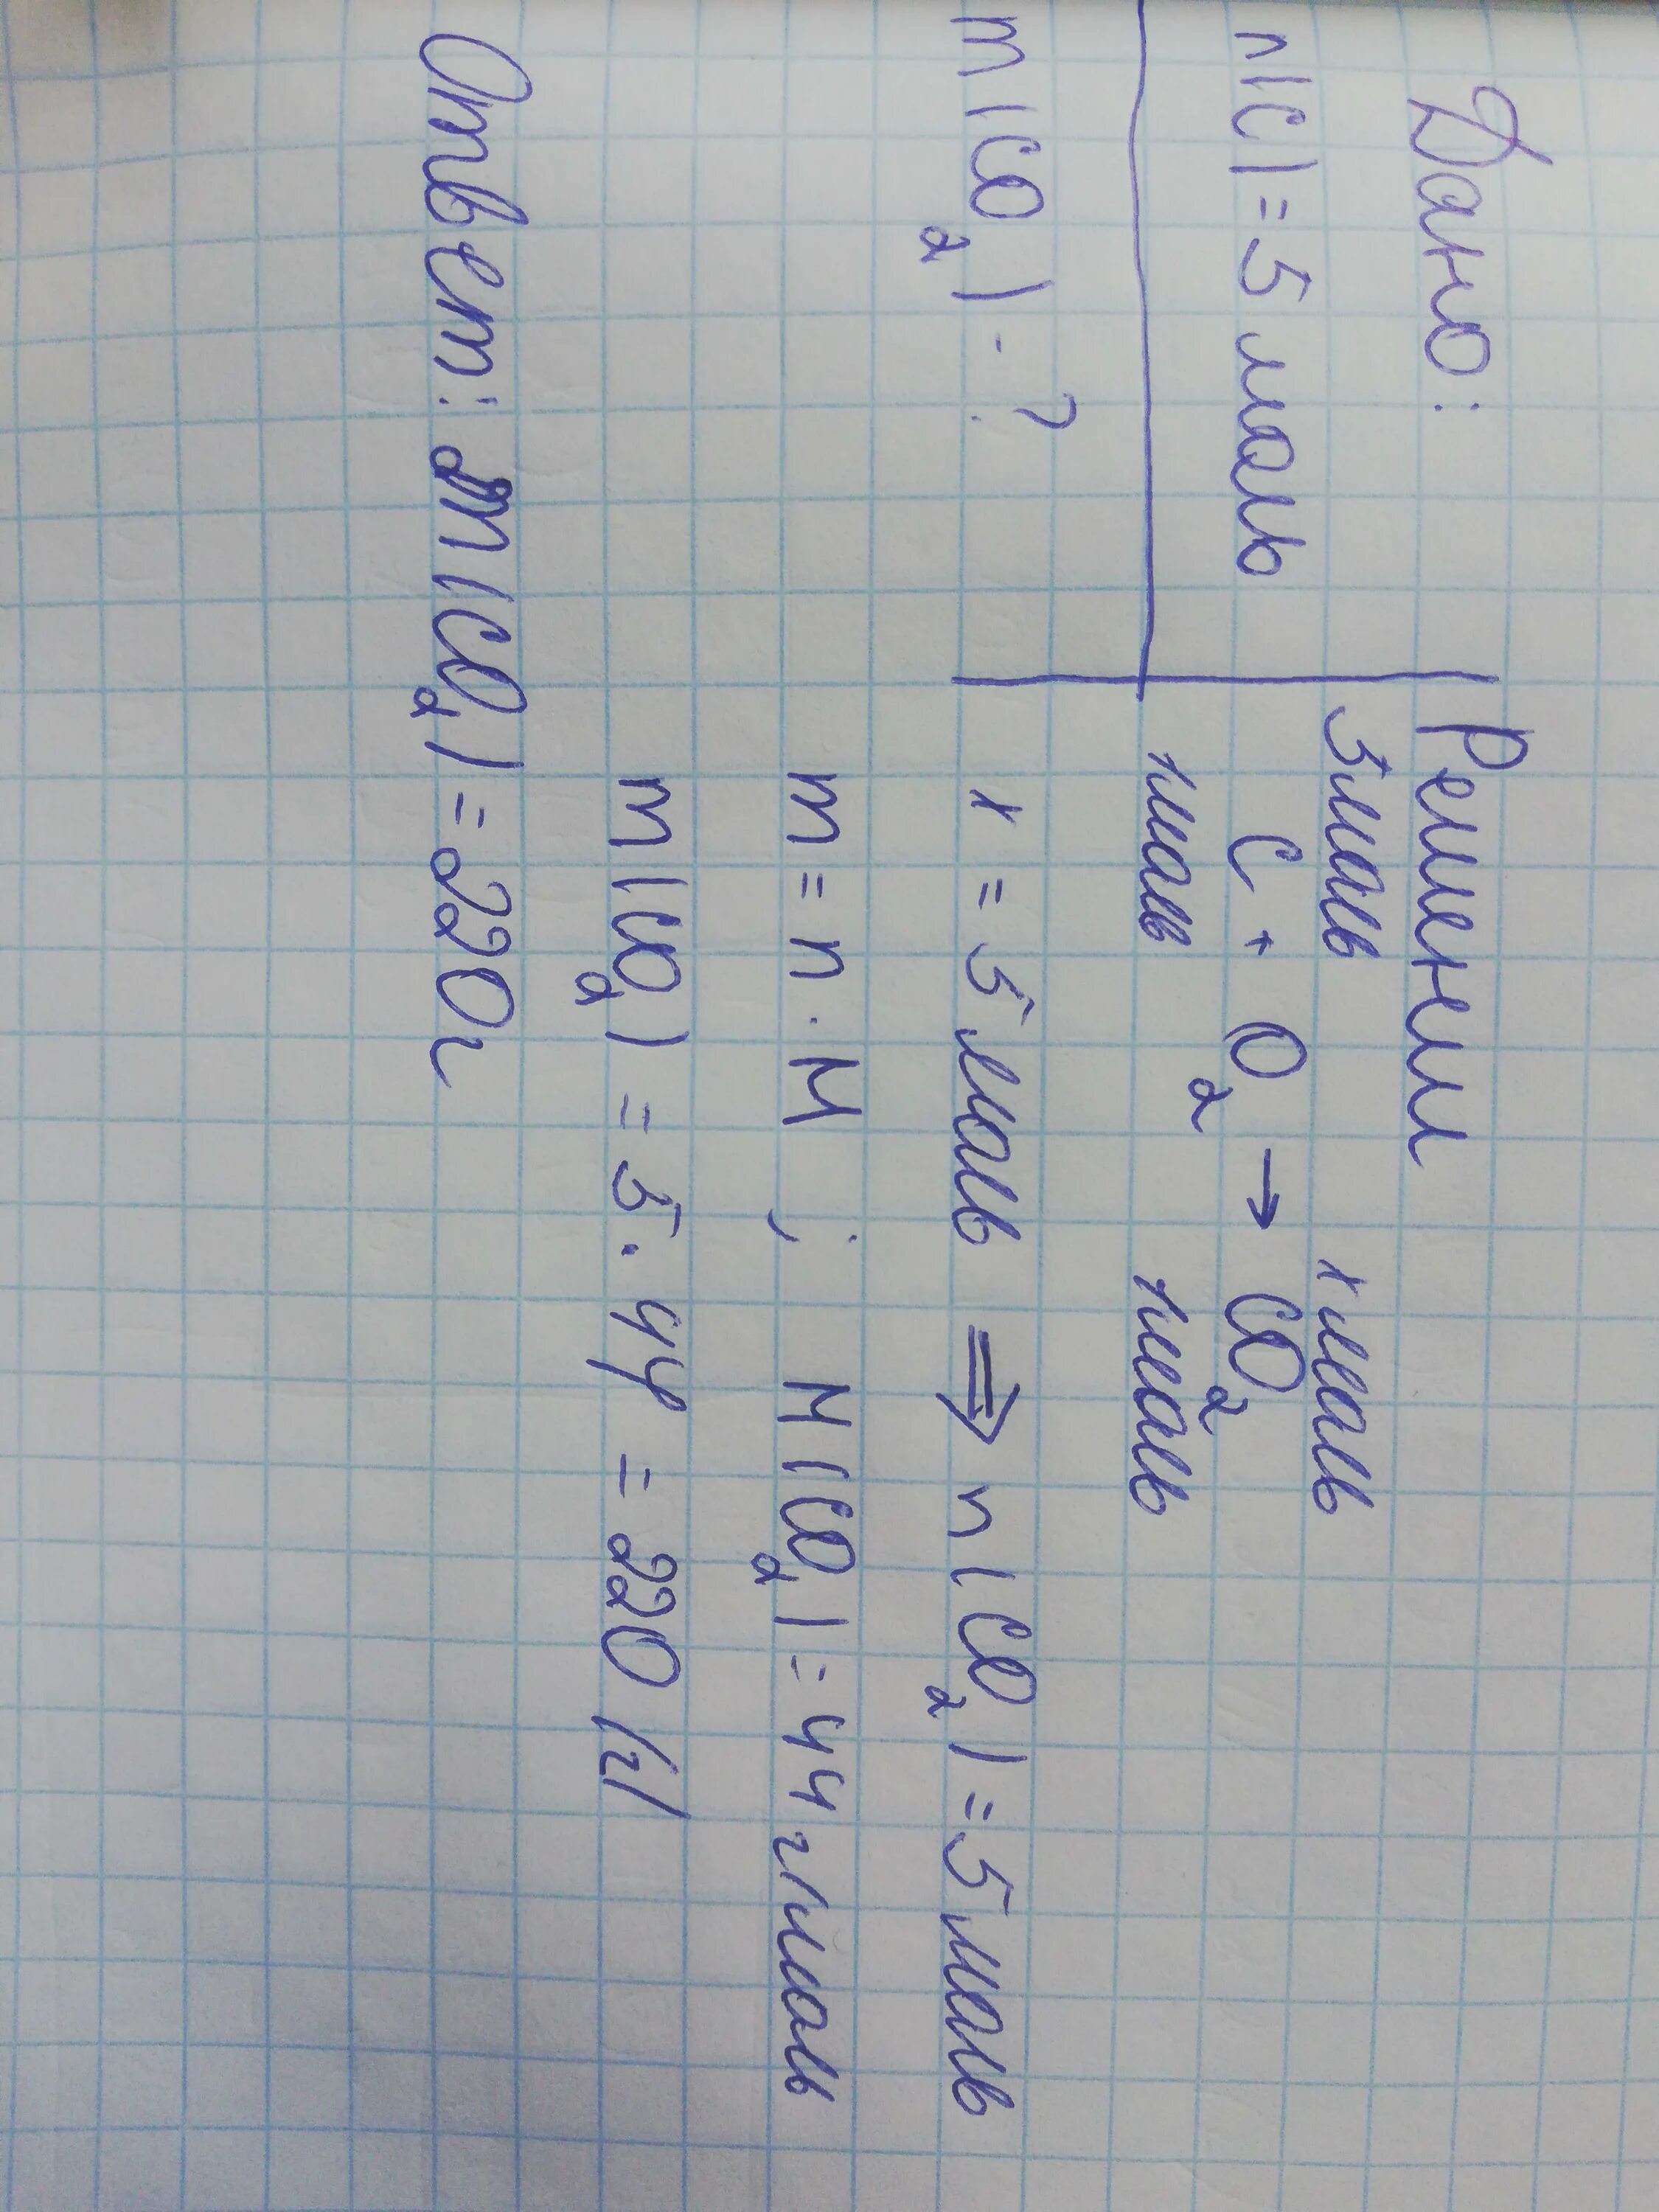 Дано:
n(C)=5 моль
m(CO₂)-?
Решении
5моль xмоль
C + O₂ → CO₂
1моль 1моль
x = 5 моль ⇒ n(CO₂)=5моль
m = n · M ; M(CO₂)=44г/моль
m(CO₂) = 5·44 = 220 (г)
Ответ: m(CO₂)=220г